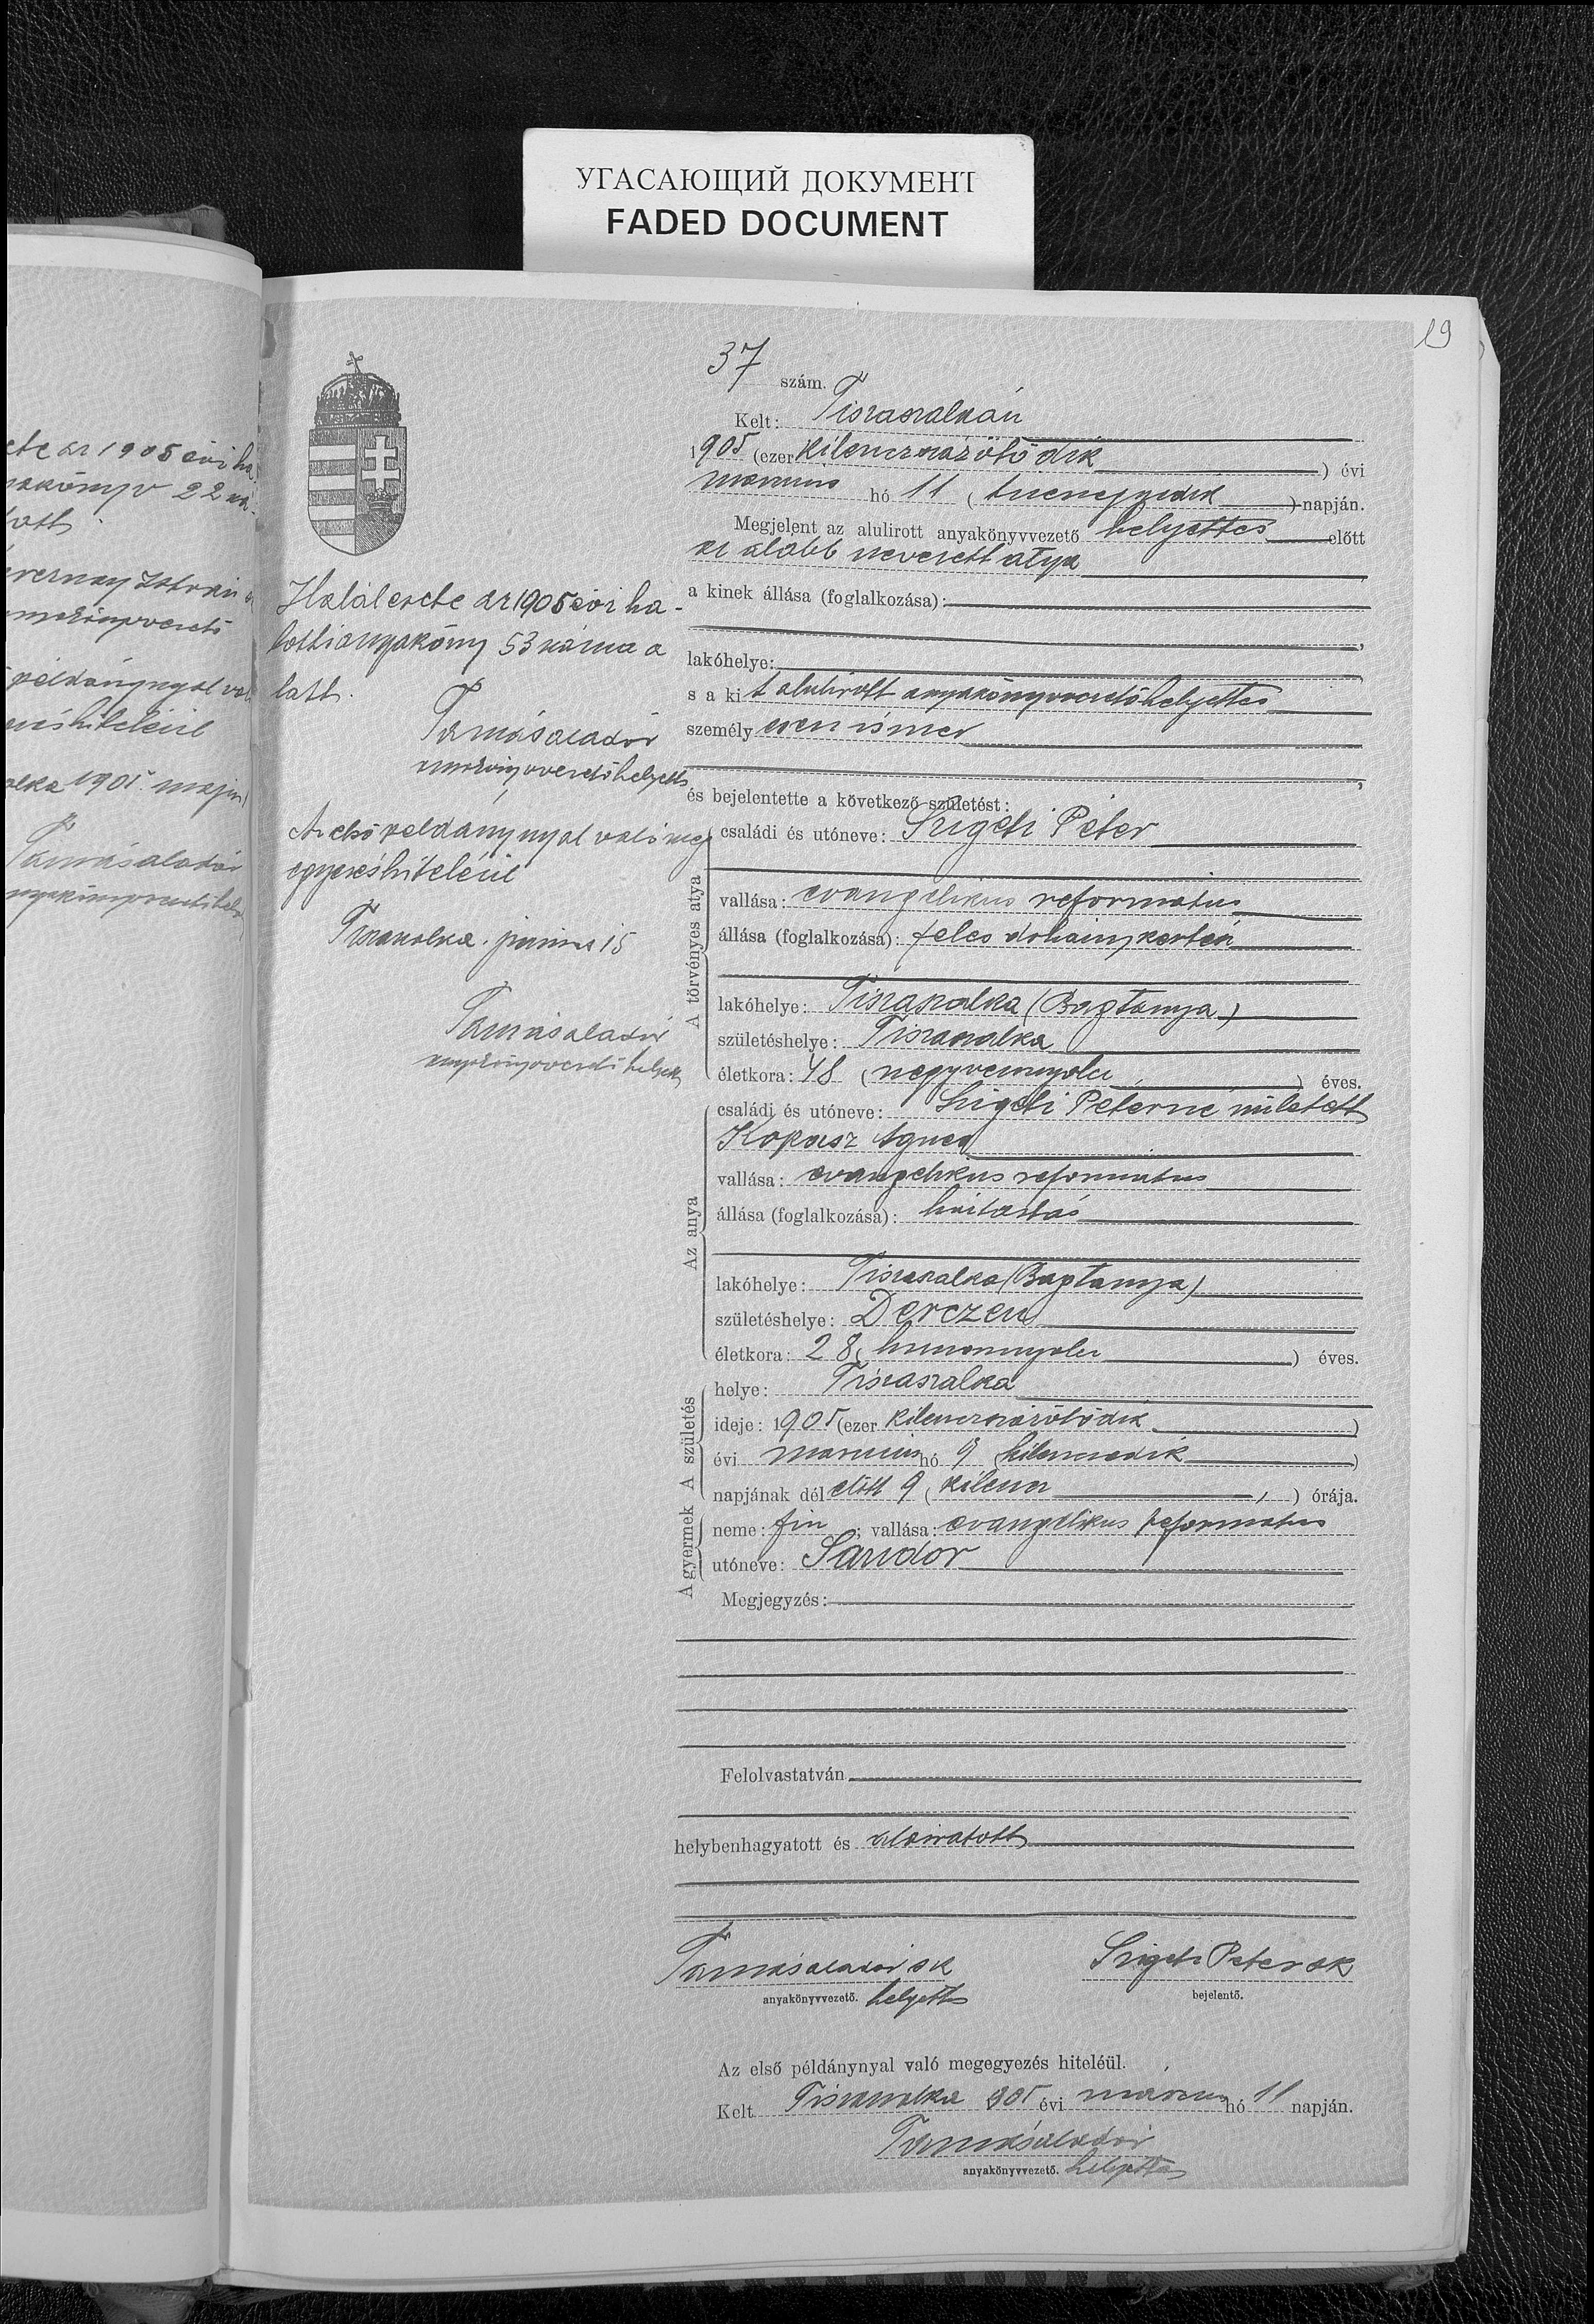 УГАСАЮЩИЙ ДОКУМЕНТ
FADED DOCUMENT
19
37 szám.
Kelt: Tiszaszalkán
1905 (ezer kilenczszázötödik) évi
marczius hó 11 (tizenegyedik) napján.
Megjelent az alulirott anyakönyvvezető helyettes előtt
az alább nevezett atya
a kinek állása (foglalkozása):
lakóhelye:
s a kit alulirott anyakönyvvezetőhelyettes
személyesen ismer
és bejelentette a következő születést:
A törvényes atya
családi és utóneve: Szigeti Péter
vallása: evangelikus reformatus
állása (foglalkozása): feles dohánykertész
lakóhelye: Tiszaszalka (Bagtanya)
születéshelye: Tiszaszalka
életkora: 48 (negyvennyolcz) éves.
Az anya
családi és utóneve: Szigeti Péterné született
Kopasz Ágnes
vallása: evangelikus reformatus
állása (foglalkozása): háztartás
lakóhelye: Tiszaszalka (Bagtanya)
születéshelye: Derczen
életkora: 28 (huszonnyolcz) éves.
A születés
helye: Tiszaszalka
ideje: 1905 (ezer kilenczszázötödik)
évi marczius hó 9 (kilenczedik)
napjának dél előtt 9 (kilencz) órája.
A gyermek
neme: fiu; vallása: evangelikus reformatus
utóneve: Sándor
Megjegyzés:
Felolvastatván
helybenhagyatott és aláiratott
Tamásaladár sk
anyakönyvvezető. helyettes
Szigeti Péter sk
bejelentő.
Az első példánynyal való megegyezés hiteléül.
Kelt Tiszaszalka 905 évi márczius hó 11 napján.
Tamásaladár
anyakönyvvezető. helyettes
Halálesete az 1905 évi ha-
lottianyakönyv 53 száma a
latt.
Tamásaladár
anyakönyvvezetőhelyettes
Az első példánynyal való meg
egyezés hiteléül
Tiszaszalka. junius 15
Tamásaladár
anyakönyvvezető helyettes
ete az 1905 évi ha
yakönyv 22 szá-
latt.
István
anyakönyvvezető
példánynyal való
egyezés hiteléül
alka 1905. majus
Tamásaladár
anyakönyvvezetőhely